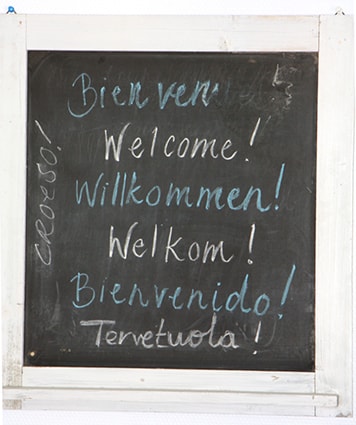 Bienven
Welcome!
Willkommen!
Welkom!
Bienvenido!
Tervetuola!
CROeSO!